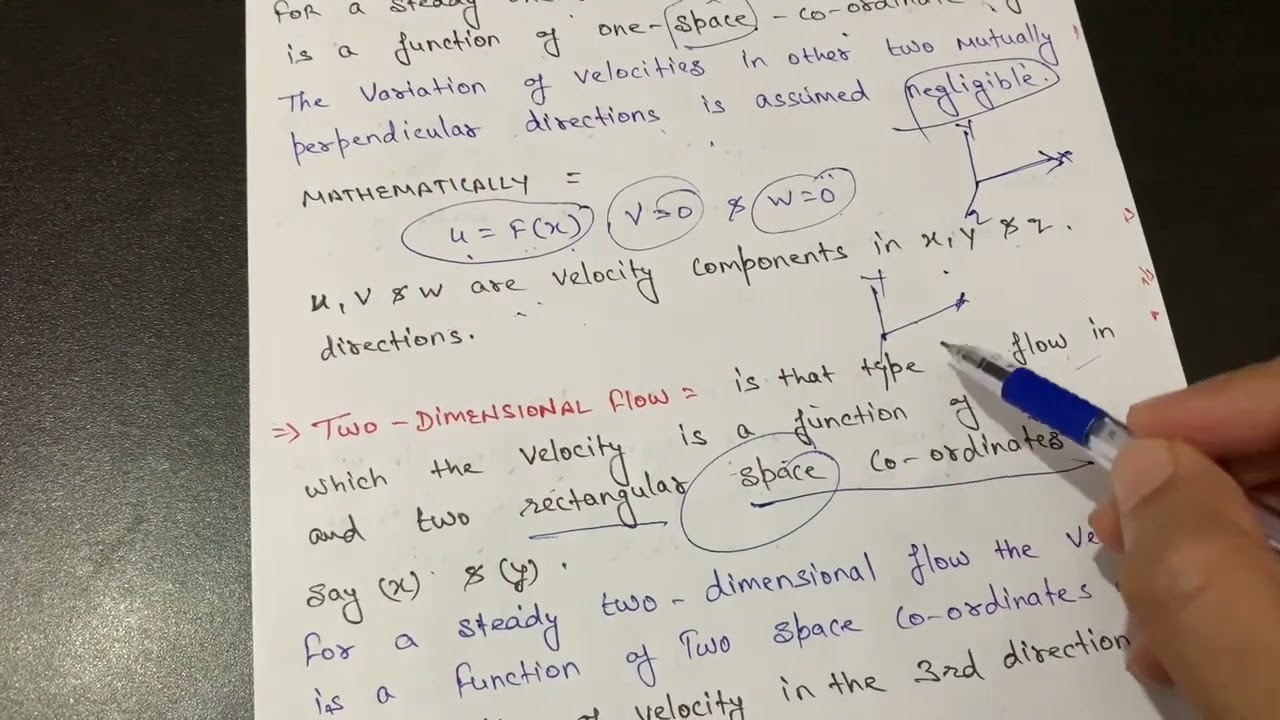 for a steady
is a function of one-space-co-ordinate
The variation of velocities in other two mutually
perpendicular directions is assumed negligible.
MATHEMATICALLY =
u = F(x) V=0 & W=0
u, v & w are velocity components in x, y & z.
directions.
=> TWO-DIMENSIONAL FLOW = is that type flow in
which the velocity is a function of
and two rectangular space co-ordinates
say (x) & (y).
for a steady two-dimensional flow the
is a function of Two space co-ordinates
of velocity in the 3rd direction